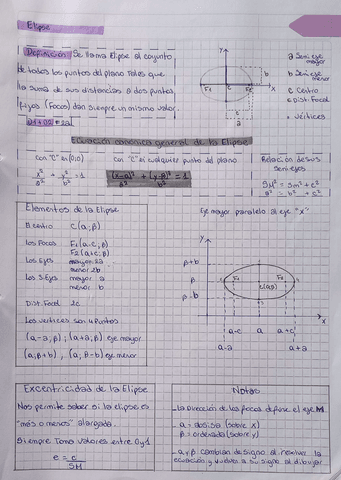 Elipse
Definición: Se llama Elipse al conjunto
de todos los puntos del plano tales que
la suma de sus distancias a dos puntos
fijos (Focos) dan siempre un mismo valor.
a Semi eje
mayor
b Semi eje
menor
c Centro
Dist. Focal
Vértices
y
x
F1
F2
C
b
a
Ecuación canónica general de la Elipse
con "C" en (0,0)
x²/a² + y²/b² = 1
con "C" en cualquier punto del plano
(x-α)²/a² + (y-β)²/b² = 1
Relación de sus
semi ejes
SM² = Sm² + c²
a² = b² + c²
Elementos de la Elipse
El centro C(α;β)
Los Focos F1(α-c;β)
F2(α+c;β)
Los Ejes mayor 2a
menor 2b
Los S.Ejes mayor a
menor b
Dist. Focal 2c
Los vértices son 4 Puntos
(α-a;β); (α+a;β) eje mayor
(α;β+b), (α;β-b) eje menor
Eje mayor paralelo al eje "x"
y
β+b
β
β-b
F1
F2
C(α;β)
x
α-c
α
α+c
α-a
α+a
Excentricidad de la Elipse
Nos permite saber si la elipse es
"más o menos" alargada.
Siempre Toma valores entre 0 y 1
e = c/SM
Notas
-La Dirección de los focos define el eje M
- α = abscisa (sobre x)
- β = ordenada (sobre y)
- α y β cambian de signo al resolver la
ecuación y vuelven a su signo al dibujar